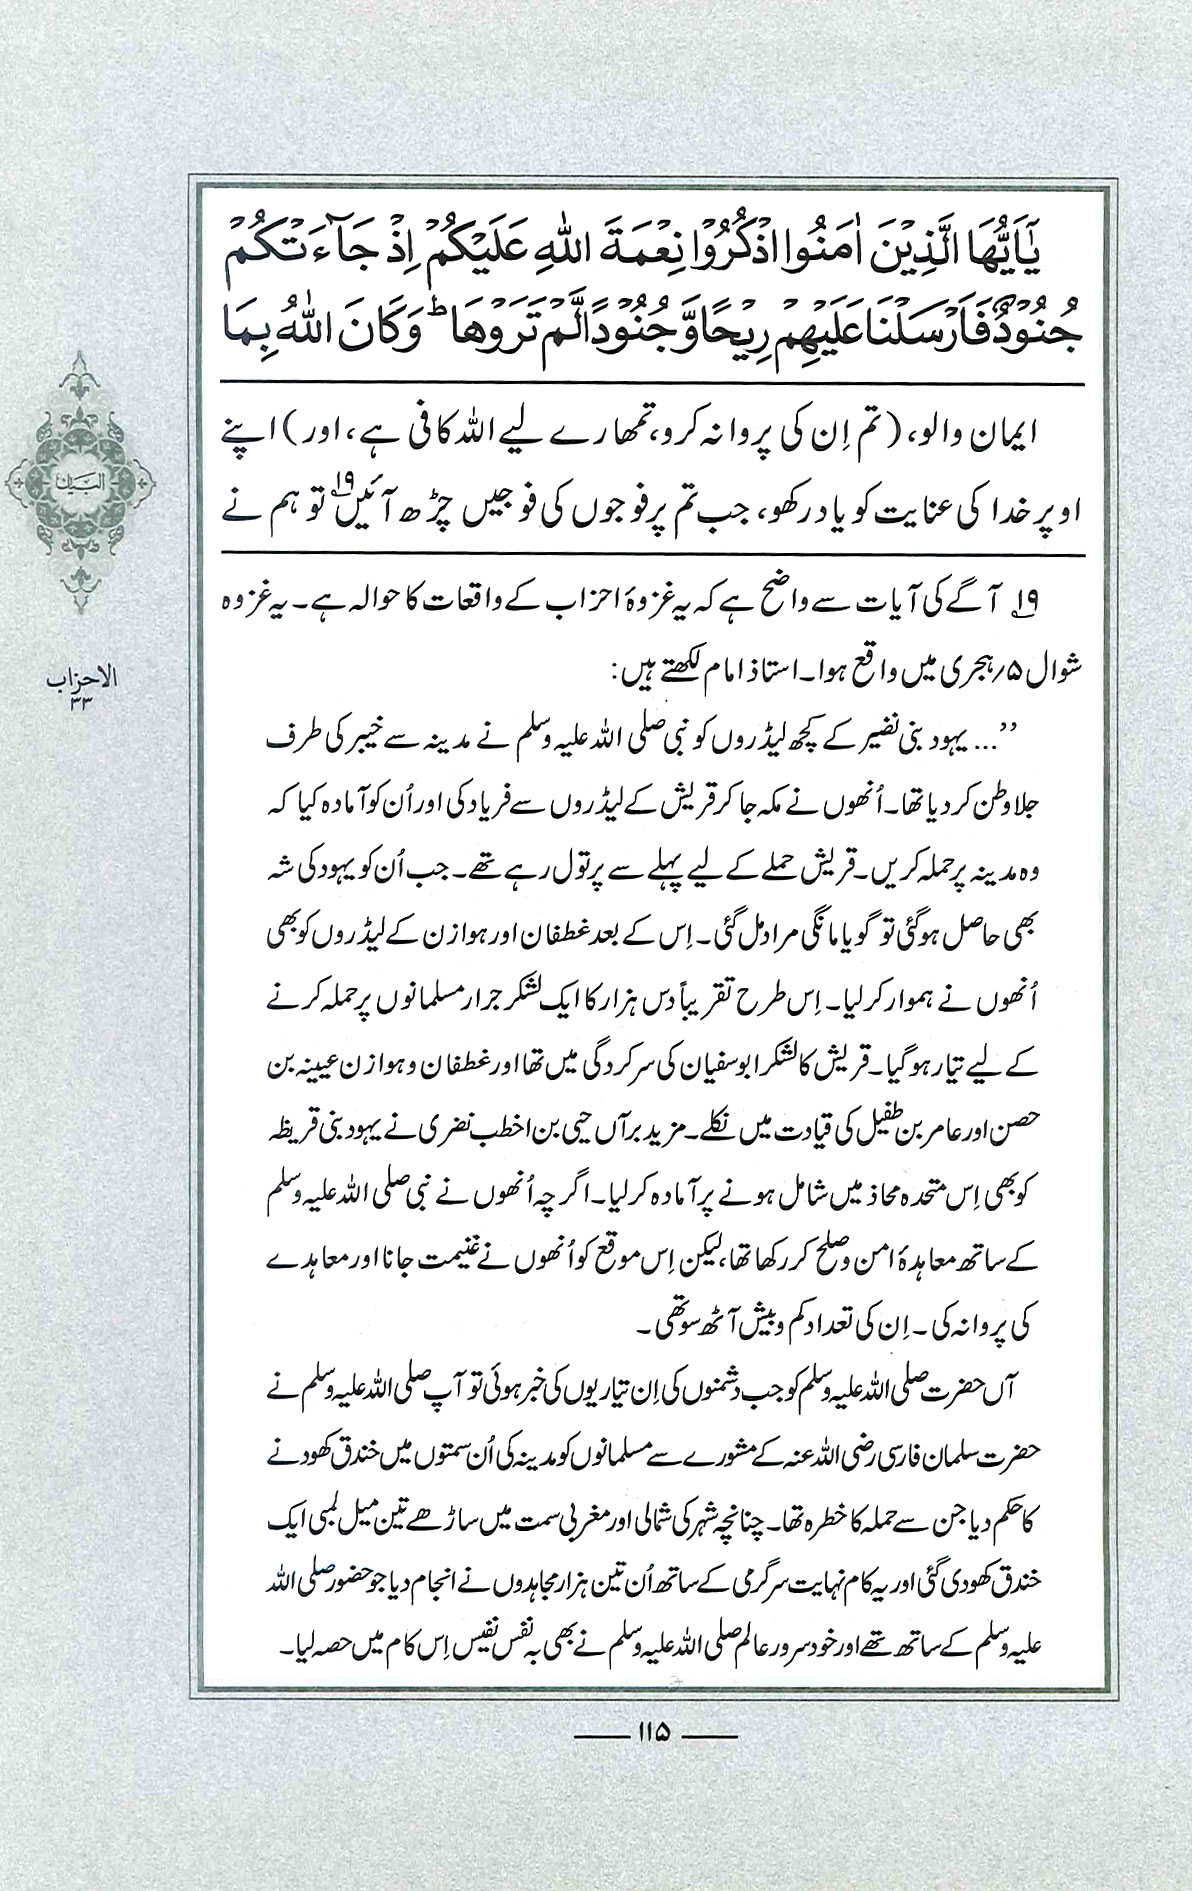 يٰٓاَيُّهَا الَّذِيْنَ اٰمَنُوا اذْكُرُوْا نِعْمَةَ اللّٰهِ عَلَيْكُمْ اِذْ جَآءَتْكُمْ
جُنُوْدٌ فَاَرْسَلْنَا عَلَيْهِمْ رِيْحًا وَّجُنُوْدًا لَّمْ تَرَوْهَا ؕ وَكَانَ اللّٰهُ بِمَا
ایمان والو، (تم اِن کی پروا نہ کرو، تمھارے لیے اللہ کافی ہے، اور) اپنے
اوپر خدا کی عنایت کو یاد رکھو، جب تم پر فوجوں کی فوجیں چڑھ آئیں۱۹ تو ہم نے
۱۹ آگے کی آیات سے واضح ہے کہ یہ غزوۂ احزاب کے واقعات کا حوالہ ہے۔ یہ غزوہ
شوال ۵/ہجری میں واقع ہوا۔ استاذ امام لکھتے ہیں:
’’... یہود بنی نضیر کے کچھ لیڈروں کو نبی صلی اللہ علیہ وسلم نے مدینہ سے خیبر کی طرف
جلاوطن کر دیا تھا۔ اُنھوں نے مکہ جا کر قریش کے لیڈروں سے فریاد کی اور اُن کو آمادہ کیا کہ
وہ مدینہ پر حملہ کریں۔ قریش حملے کے لیے پہلے سے پر تول رہے تھے۔ جب اُن کو یہود کی شہ
بھی حاصل ہو گئی تو گویا مانگی مراد مل گئی۔ اِس کے بعد غطفان اور ہوازن کے لیڈروں کو بھی
اُنھوں نے ہموار کر لیا۔ اِس طرح تقریباً دس ہزار کا ایک لشکر جرار مسلمانوں پر حملہ کرنے
کے لیے تیار ہو گیا۔ قریش کا لشکر ابوسفیان کی سرکردگی میں تھا اور غطفان و ہوازن عیینہ بن
حصن اور عامر بن طفیل کی قیادت میں نکلے۔ مزید برآں حیی بن اخطب نضری نے یہود بنی قریظہ
کو بھی اِس متحدہ محاذ میں شامل ہونے پر آمادہ کر لیا۔ اگرچہ اُنھوں نے نبی صلی اللہ علیہ وسلم
کے ساتھ معاہدۂ امن و صلح کر رکھا تھا، لیکن اِس موقع کو اُنھوں نے غنیمت جانا اور معاہدے
کی پروا نہ کی۔ اِن کی تعداد کم و بیش آٹھ سو تھی۔
آں حضرت صلی اللہ علیہ وسلم کو جب دشمنوں کی اِن تیاریوں کی خبر ہوئی تو آپ صلی اللہ علیہ وسلم نے
حضرت سلمان فارسی رضی اللہ عنہ کے مشورے سے مسلمانوں کو مدینہ کی اُن سمتوں میں خندق کھودنے
کا حکم دیا جن سے حملہ کا خطرہ تھا۔ چنانچہ شہر کی شمالی اور مغربی سمت میں ساڑھے تین میل لمبی ایک
خندق کھودی گئی اور یہ کام نہایت سرگرمی کے ساتھ اُن تین ہزار مجاہدوں نے انجام دیا جو حضور صلی اللہ
علیہ وسلم کے ساتھ تھے اور خود سرور عالم صلی اللہ علیہ وسلم نے بھی بہ نفس نفیس اِس کام میں حصہ لیا۔
البیان
الاحزاب
۳۳
۱۱۵